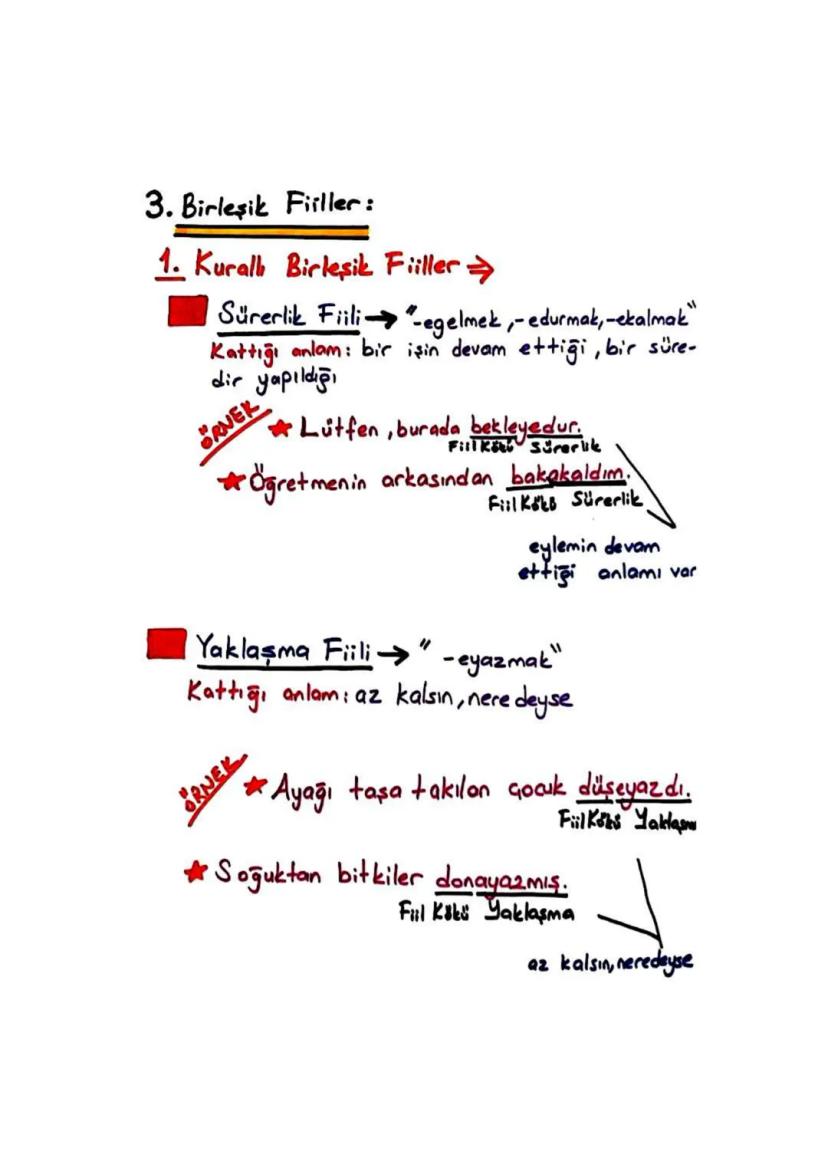 3. Birleşik Fiiller:
1. Kurallı Birleşik Fiiller ⇒
Sürerlik Fiili → "-egelmek, -edurmak, -ekalmak"
Kattığı anlam: bir işin devam ettiği, bir süre-
dir yapıldığı
ÖRNEK ★ Lütfen, burada bekleyedur.
Fiil Kökü Sürerlik
★ Öğretmenin arkasından bakakaldım.
Fiil Kökü Sürerlik
eylemin devam
ettiği anlamı var
Yaklaşma Fiili → "-eyazmak"
Kattığı anlam: az kalsın, neredeyse
ÖRNEK ★ Ayağı taşa takılan çocuk düşeyazdı.
Fiil Kökü Yaklaşma
★ Soğuktan bitkiler donayazmış.
Fiil Kökü Yaklaşma
az kalsın, neredeyse